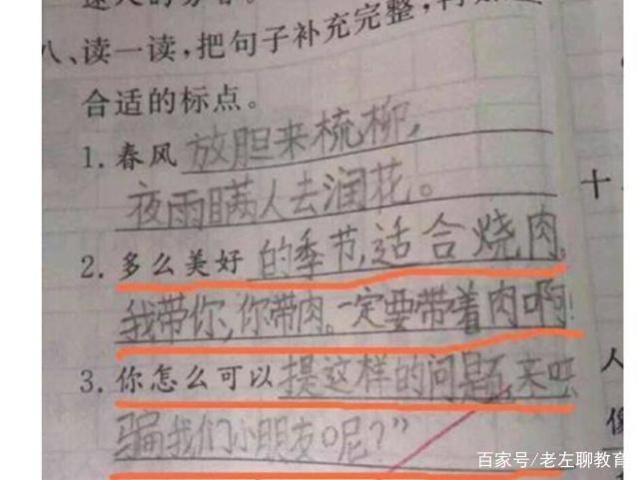 八、读一读，把句子补充完整，再
合适的标点。
1. 春风放胆来梳柳，
夜雨瞒人去润花。
十
2. 多么美好的季节，适合烧肉，
我带你，你带肉。一定要带着肉啊！
3. 你怎么可以提这样的问题，来哄
人
骗我们小朋友呢？”
像
百家号/老左聊教育